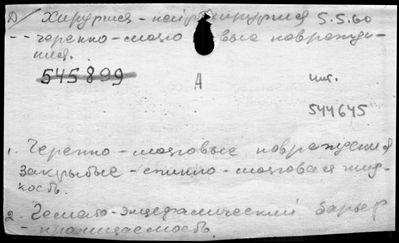 D/ Хирургия - нейрохирургия 5.5.60
-- черепно-мозговые поврежде-
ния.
545899 А шт.
544645
1. Черепно-мозговые повреждения
закрытые - спинно-мозговая жид-
кость.
2. Гемато-энцефалический барьер
- проницаемость.